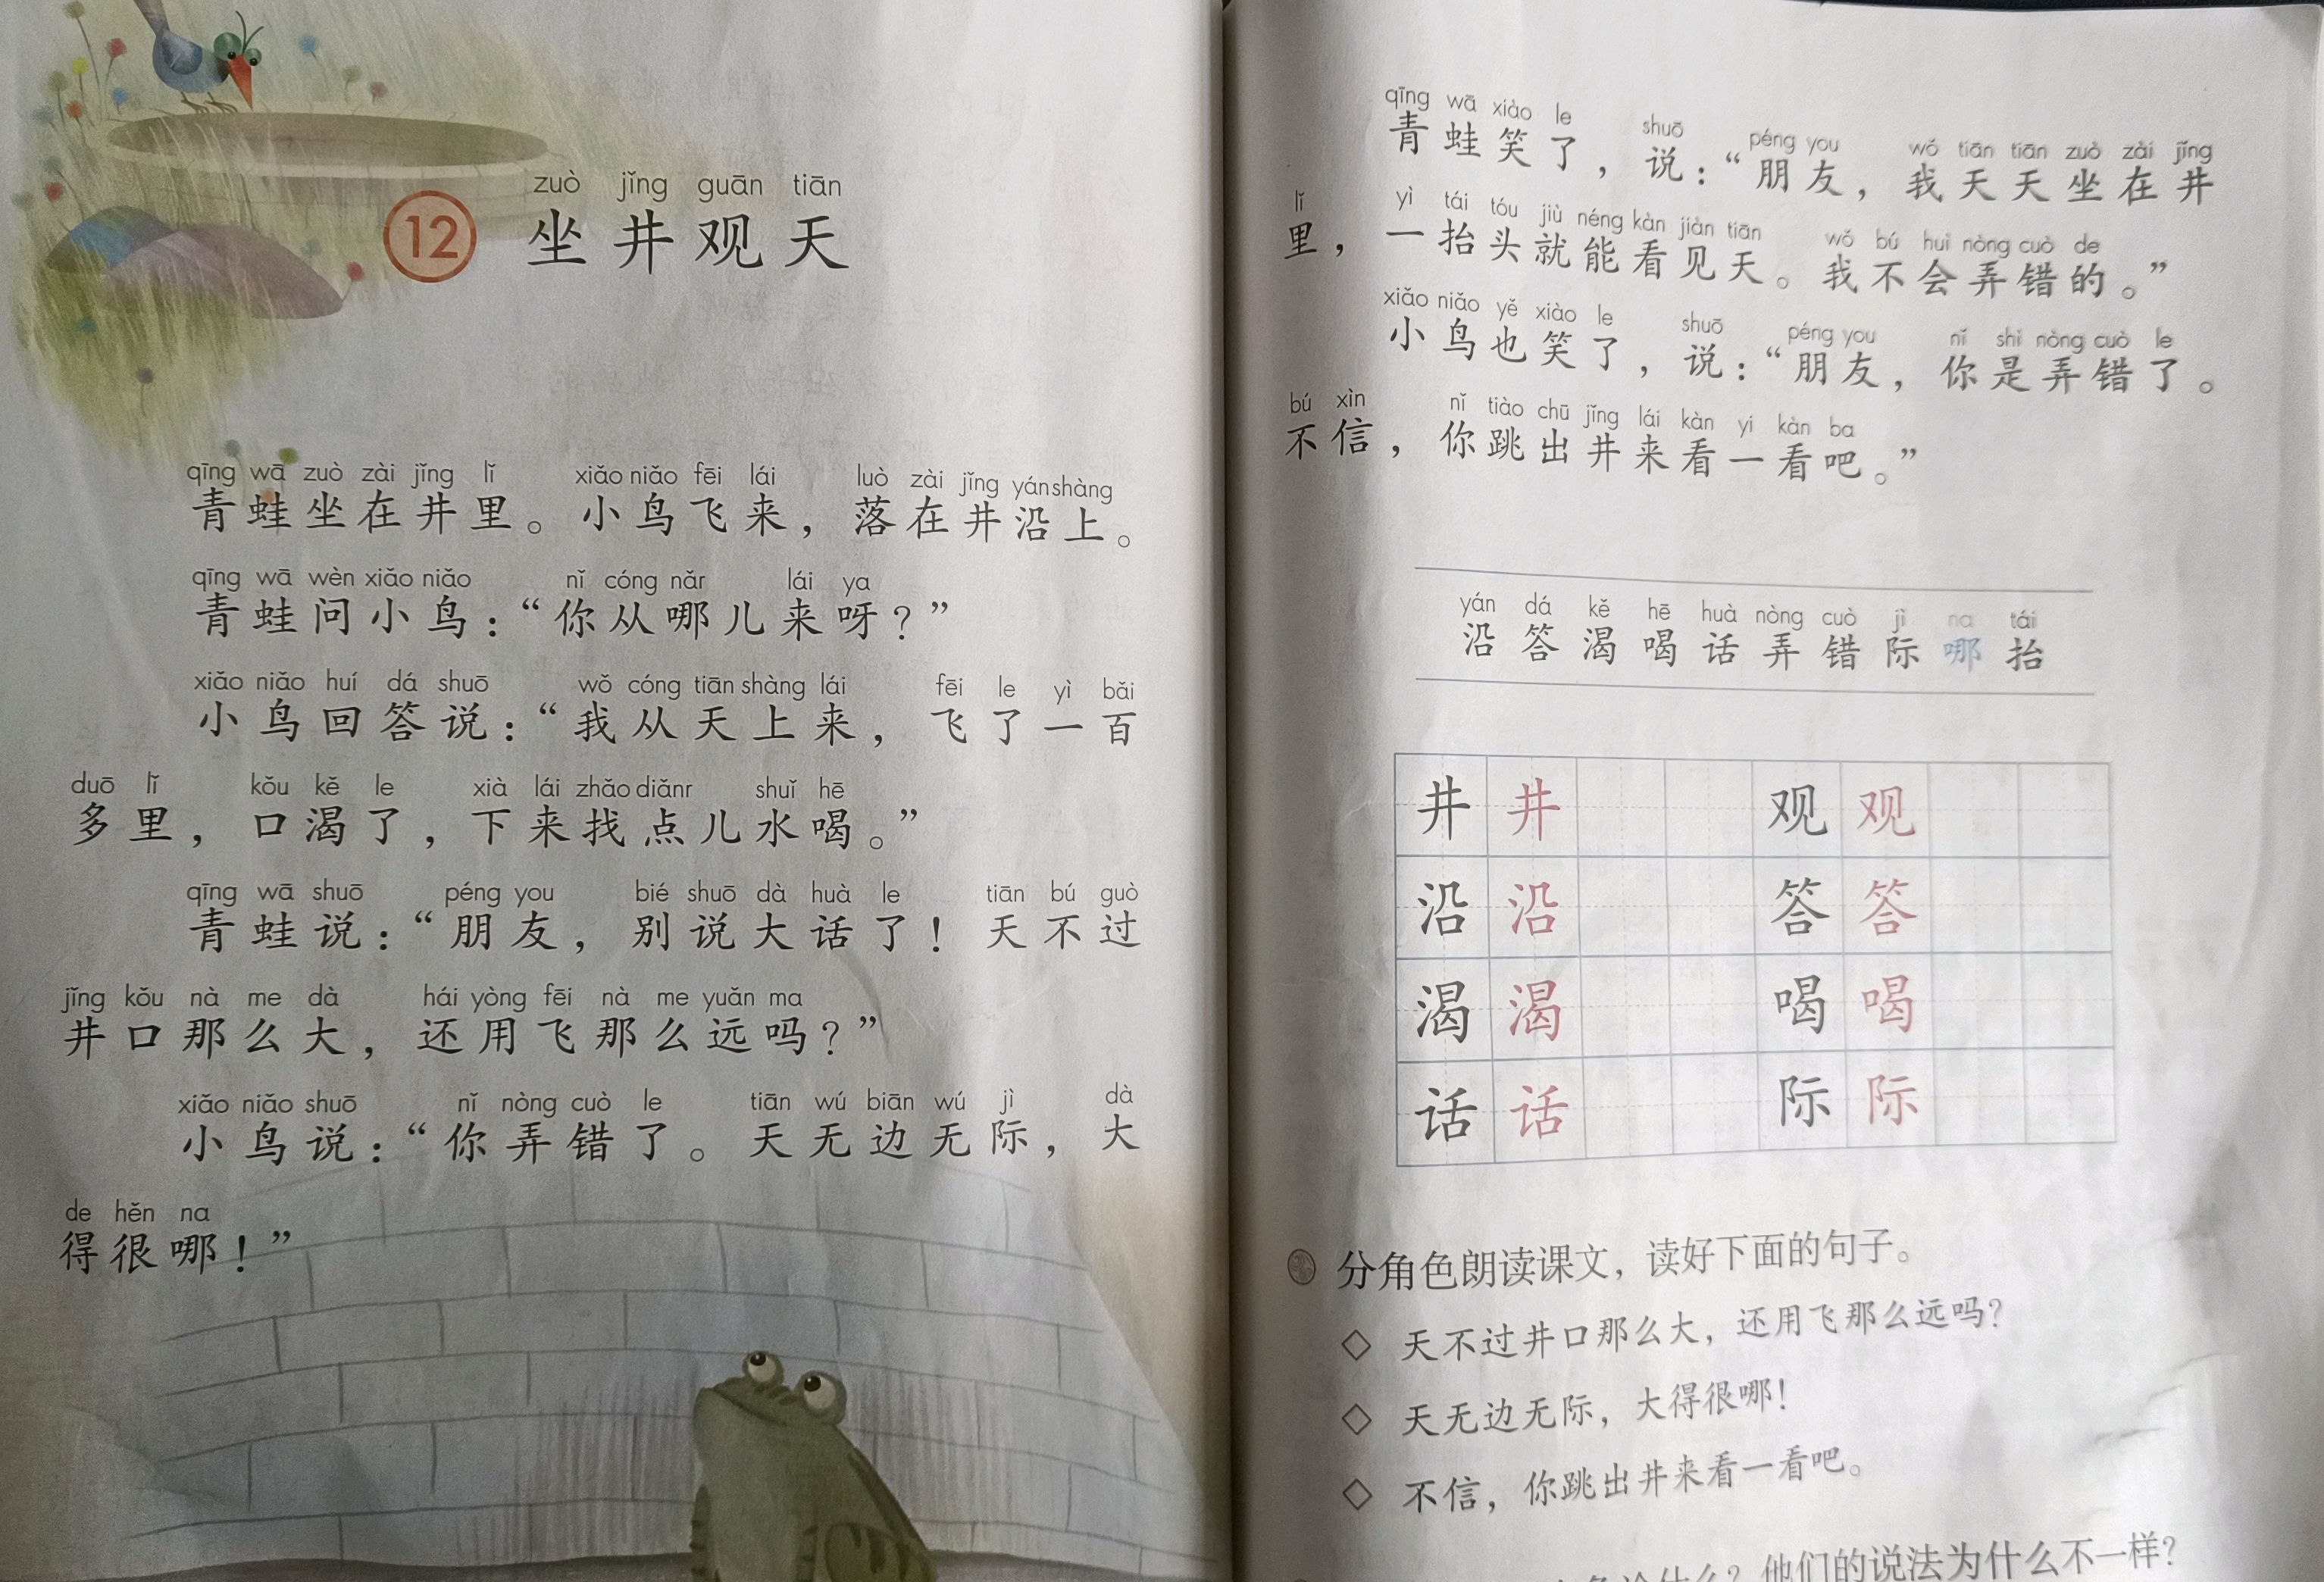 zuò jǐng guān tiān
12 坐井观天
qīng wā zuò zài jǐng lǐ xiǎo niǎo fēi lái luò zài jǐng yán shàng
青蛙坐在井里。小鸟飞来，落在井沿上。
qīng wā wèn xiǎo niǎo nǐ cóng nǎr lái ya
青蛙问小鸟：“你从哪儿来呀？”
xiǎo niǎo huí dá shuō wǒ cóng tiān shàng lái fēi le yì bǎi
小鸟回答说：“我从天上来，飞了一百
duō lǐ kǒu kě le xià lái zhǎo diǎnr shuǐ hē
多里，口渴了，下来找点儿水喝。”
qīng wā shuō péng you bié shuō dà huà le tiān bú guò
青蛙说：“朋友，别说大话了！天不过
jǐng kǒu nà me dà hái yòng fēi nà me yuǎn ma
井口那么大，还用飞那么远吗？”
xiǎo niǎo shuō nǐ nòng cuò le tiān wú biān wú jì dà
小鸟说：“你弄错了。天无边无际，大
de hěn na
得很哪！”
qīng wā xiào le shuō péng you wǒ tiān tiān zuò zài jǐng
青蛙笑了，说：“朋友，我天天坐在井
lǐ yì tái tóu jiù néng kàn jiàn tiān wǒ bú huì nòng cuò de
里，一抬头就能看见天。我不会弄错的。”
xiǎo niǎo yě xiào le shuō péng you nǐ shì nòng cuò le
小鸟也笑了，说：“朋友，你是弄错了。
bú xìn nǐ tiào chū jǐng lái kàn yi kàn ba
不信，你跳出井来看一看吧。”
yán dá kě hē huà nòng cuò jì na tái
沿 答 渴 喝 话 弄 错 际 哪 抬
井 井 观 观
沿 沿 答 答
渴 渴 喝 喝
话 话 际 际
分角色朗读课文，读好下面的句子。
◇ 天不过井口那么大，还用飞那么远吗？
◇ 天无边无际，大得很哪！
◇ 不信，你跳出井来看一看吧。
什么？他们的说法为什么不一样？